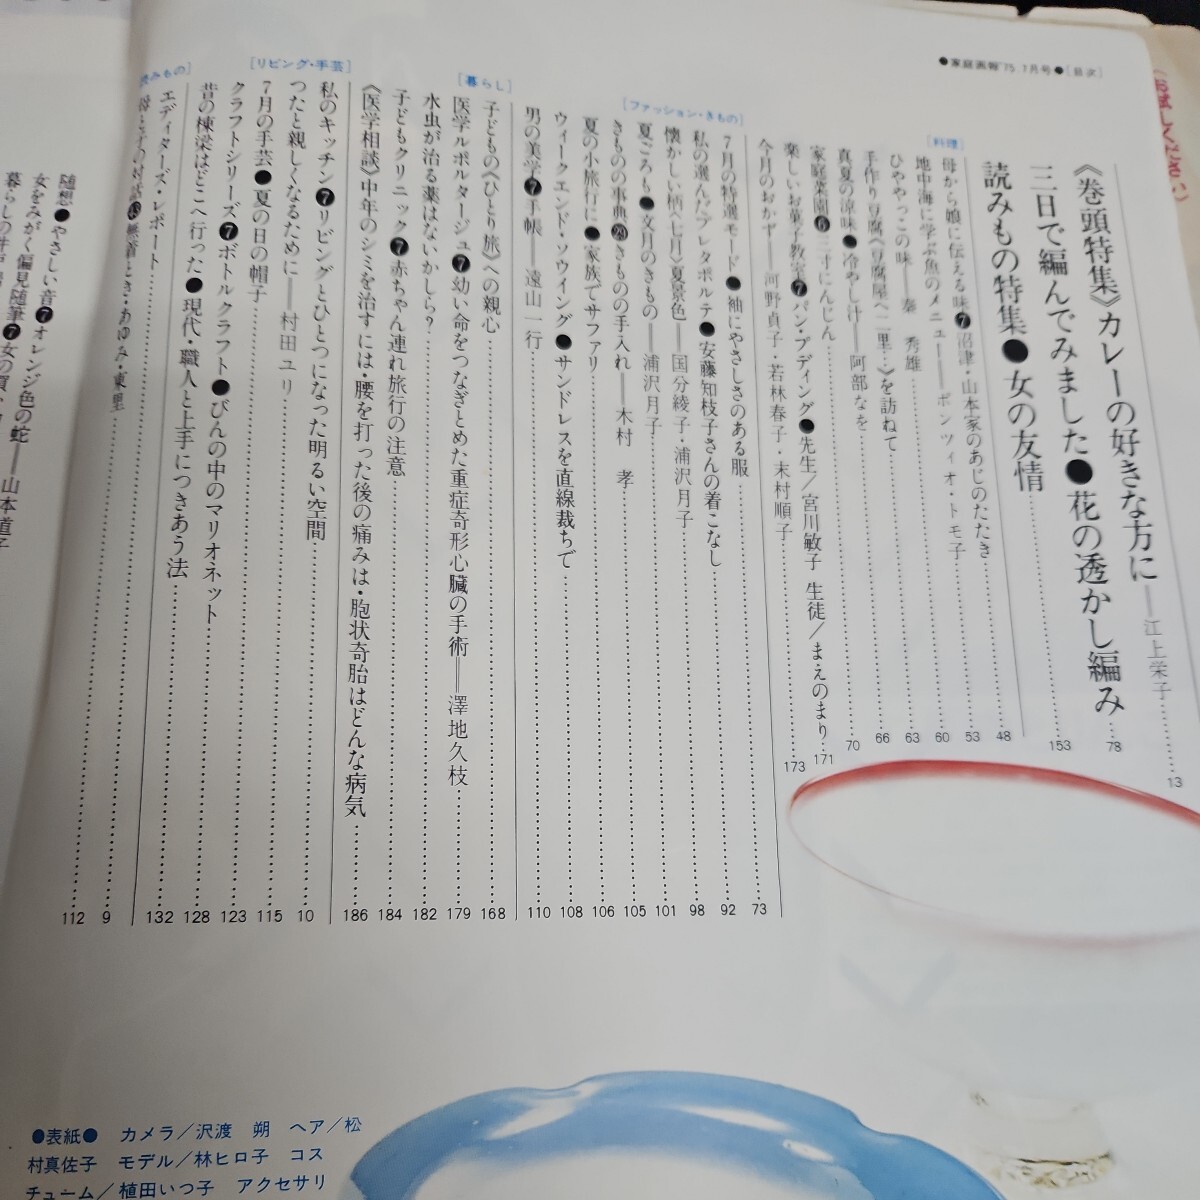 ●家庭画報'75 7月号●[目次]
お試しください
《巻頭特集》カレーの好きな方に——江上栄子……13
三日で編んでみました●花の透かし編み……78
読みもの特集●女の友情……153
[料理]
母から娘に伝える味❼沼津・山本家のあじのたたき……48
地中海に学ぶ魚のメニュー——ボンツィオ・トモ子……53
ひややっこの味——秦 秀雄……60
手作り豆腐《豆腐屋へ二里…》を訪ねて……63
真夏の涼味●冷やし汁——阿部なを……66
家庭菜園❻三寸にんじん……70
楽しいお菓子教室❼パン・プディング●先生/宮川敏子 生徒/まえのまり……171
今月のおかず——河野貞子・若林春子・末村順子……173
[ファッション・きもの]
7月の特選モード●紬にやさしさのある服……73
私の選んだプレタポルテ●安藤知枝子さんの着こなし……92
懐かしい柄《七月》夏景色——国分綾子・浦沢月子……98
夏ごろも●文月のきもの——浦沢月子……101
きものの事典㉙きものの手入れ——木村 孝……105
夏の小旅行に●家族でサファリ……106
ウィークエンド・ソウイング●サンドレスを直線裁ちで……108
男の美学❼手帳——遠山一行……110
[暮らし]
子どもの《ひとり旅》への親心……168
医学ルポルタージュ❼幼い命をつなぎとめた重症奇形心臓の手術——澤地久枝……179
水虫が治る薬はないかしら?……182
子どもクリニック❼赤ちゃん連れ旅行の注意……184
《医学相談》中年のシミを治すには・腰を打った後の痛みは・胞状奇胎はどんな病気……186
[リビング・手芸]
私のキッチン❼リビングとひとつになった明るい空間……10
つたと親しくなるために——村田ユリ……115
7月の手芸●夏の日の帽子……123
クラフトシリーズ❼ボトルクラフト●びんの中のマリオネット……128
昔の棟梁はどこへ行った●現代・職人と上手につきあう法……132
[読みもの]
エディターズ・レポート……9
母と子の対話⓭無着とき・あゆみ・東里……112
随想●やさしい音❼オレンジ色の蛇——山本道子
女をみがく偏見随筆❼女の買い
●表紙● カメラ/沢渡 朔 ヘア/松
村真佐子 モデル/林ヒロ子 コス
チューム/植田いつ子 アクセサリ